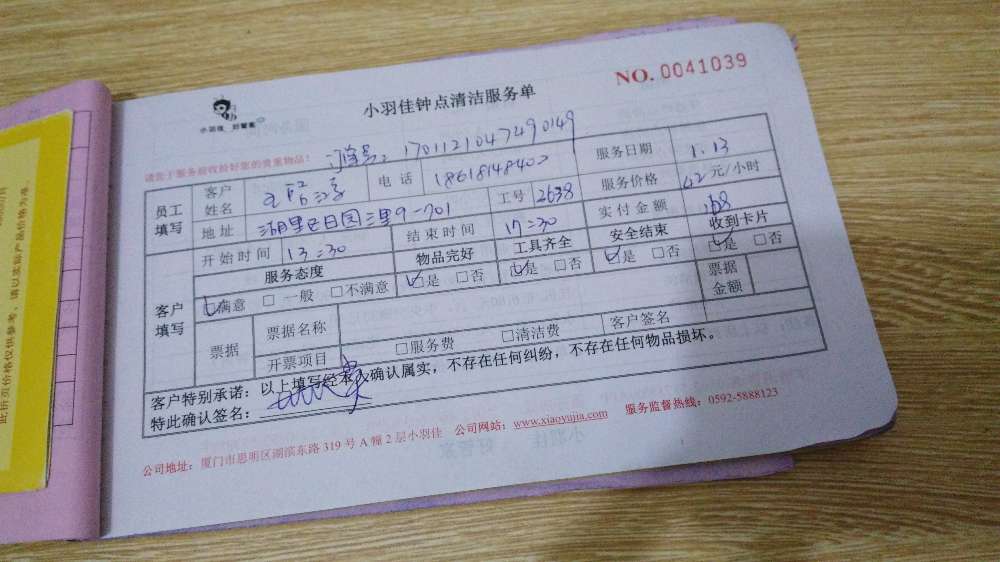 NO. 0041039
小羽佳钟点清洁服务单
小羽佳 好管家
1701121047490149
请客户服务前收拾好您的贵重物品!
员工填写 客户姓名 电话 18618148402 服务日期 1.13
地址 湖里区日圆三里9-701 工号 2638 服务价格 42元/小时
开始时间 13:30 结束时间 17:30 实付金额 168
客户填写 服务态度 物品完好 工具齐全 安全结束 收到卡片
☑满意 □一般 □不满意 ☑是 □否 ☑是 □否 ☑是 □否 ☑是 □否
票据 票据名称 票据金额
开票项目 □服务费 □清洁费 客户签名
客户特别承诺:以上填写经本人确认属实,不存在任何纠纷,不存在任何物品损坏。
特此确认签名:
公司地址:厦门市思明区湖滨东路319号A幢2层小羽佳 公司网站:www.xiaoyujia.com 服务监督热线:0592-5888123
此折页价格仅供参考,请以实际产品价格为准。